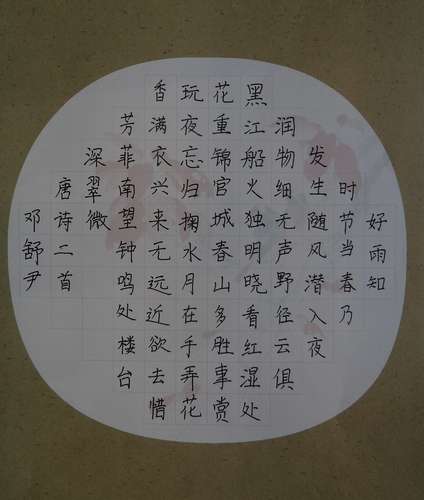 好雨知
时节当春乃
发生随风潜入夜
润物细无声野径云俱
黑江船火独明晓看红湿处
花重锦官城春山多胜事赏
玩夜忘归掬水月在手弄花
香满衣兴来无远近欲去惜
芳菲南望钟鸣处楼台
深翠微
唐诗二首
邓舒尹